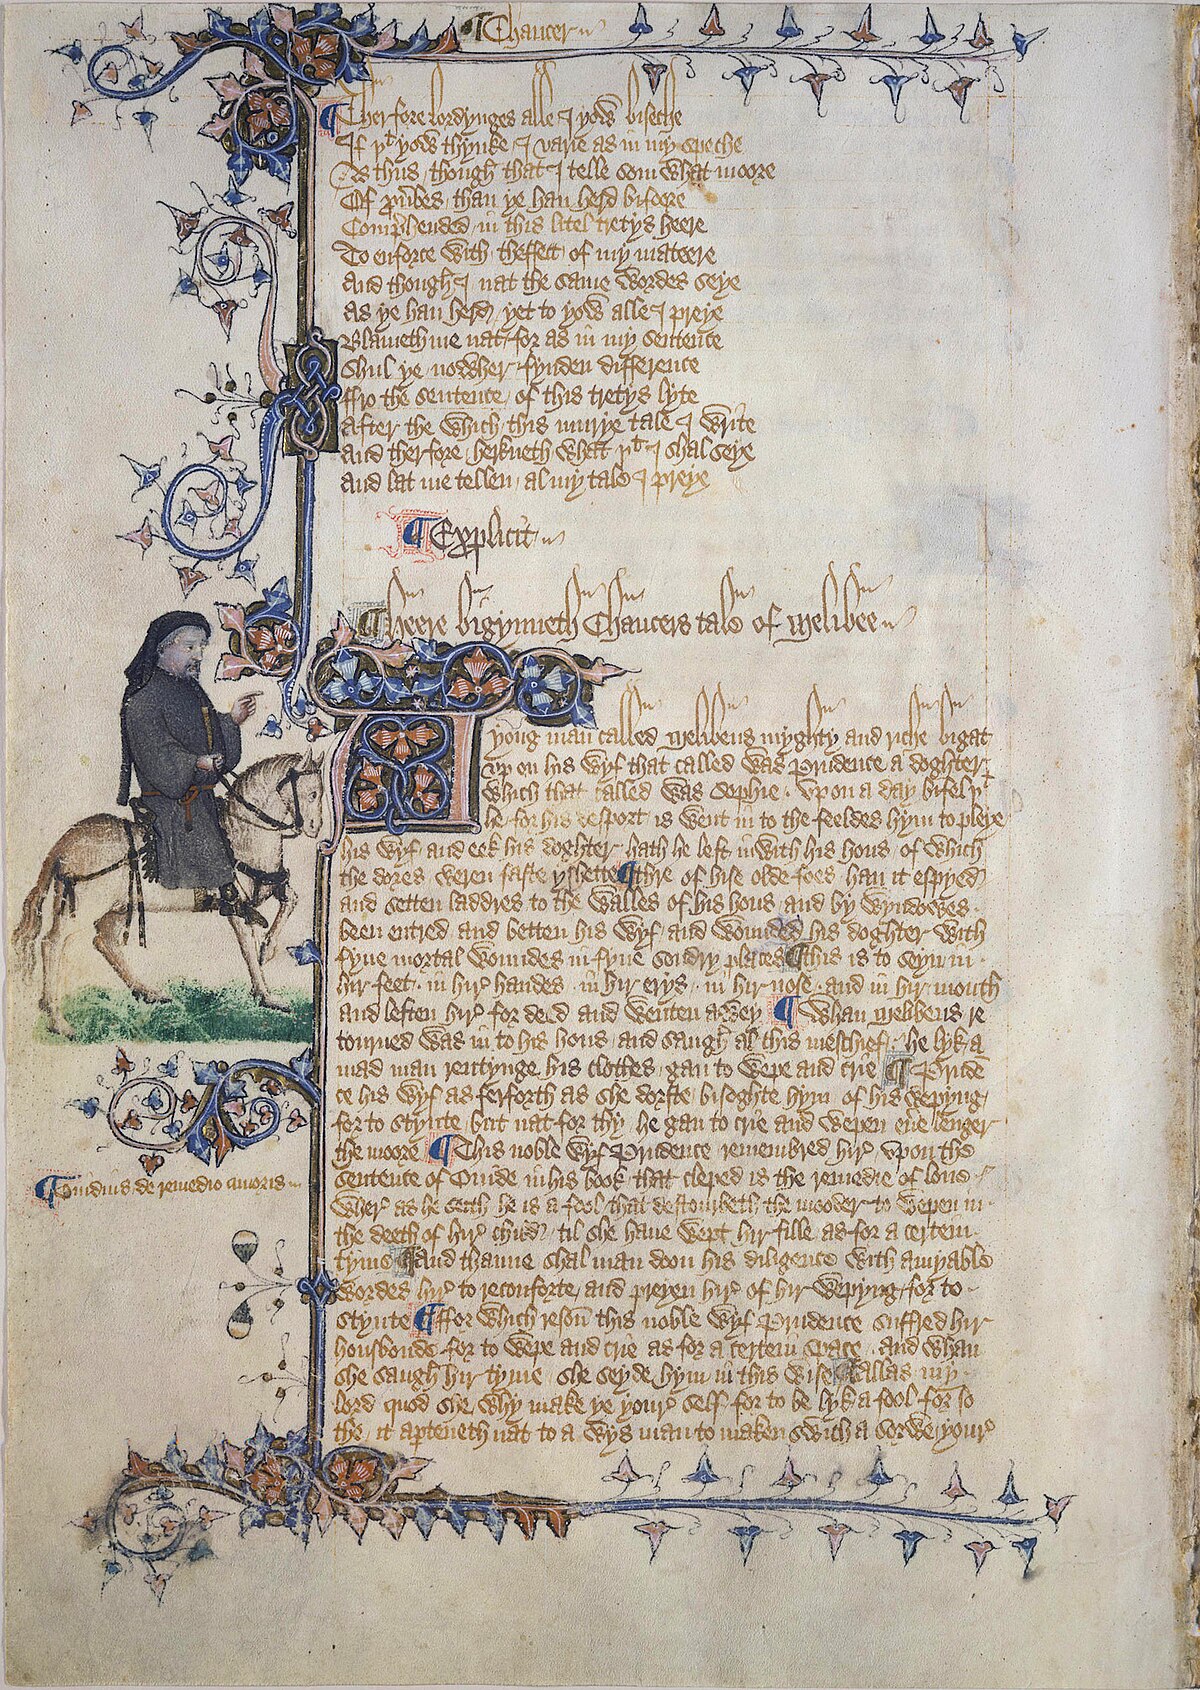 ¶ Chaucer
¶ Therfore lordynges alle I yow biseche
If þt yow thynke I varie as in my speche
As thus though that I telle som what moore
Of prouerbes than ye han herd bifoore
Comprehended in this litel tretys heere
To enforce with theffect of my mateere
And though I nat the same wordes seye
As ye han herd yet to yow alle I preye
Blameth me nat for as in my sentence
Shul ye nowher fynden difference
ffro the sentence of this tretys lyte
After the which this murye tale I write
And therfore herkneth what þt I shal seye
And lat me tellen al my tale I preye
¶ Explicit
¶ Heere bigynneth Chaucers tale of Melibee
A yong man called Melibeus myghty and riche bigat
vp on his wyf that called was Prudence a doghter
which that called was Sophie · vpon a day bifel þt
he for his desport is went in to the feeldes hym to pleye
his wyf and eek his doghter hath he left inwith his hous of which
the dores weren faste yshette ¶ Thre of hise olde foes han it espyed
and setten laddres to the walles of his hous and by wyndowes
been entred and betten his wyf and wounded his doghter with
fyue mortal woundes in fyue sondry places ¶ This is to seyn in
hir feet · in hir handes · in hir erys · in hir nose · and in hir mouth
and leften hir for deed and wenten awey ¶ Whan Melibeus re
tourned was in to his hous and saugh al this meschief · he lyk a
mad man rentynge his clothes gan to wepe and crie ¶ Pruden
ce his wyf as ferforth as she dorste bisoghte hym of his wepyng
for to stynte but nat for thy he gan to crie and wepen euere lenger
the moore ¶ This noble wyf Prudence remembred hir vpon the
sentence of Ouide in his book that cleped is the remedie of loue
¶ Ouidius de remedio amoris
wher as he seith he is a fool that destourbeth the mooder to wepen in
the deeth of hir child til she haue wept hir fille as for a certein
tyme ¶ And thanne shal man doon his diligence with amyable
wordes hir to reconforte and preyen hir of hir wepyng for to
stynte ¶ ffor which reson this noble wyf Prudence suffred hir
housbonde for to wepe and crie as for a certein space · and whan
she saugh hir tyme she seyde hym in this wise ¶ Allas my
lord quod she why make ye youre self for to be lyk a fool for so
the it aperteneth nat to a wys man to maken swich a sorwe youre